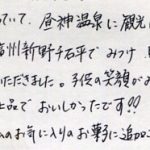 ていて、昼神温泉に観光
信州新野千石平でみつけ
いただきました。子供の笑顔が
上品でおいしかったです!!
のお気に入りのお菓子に追加